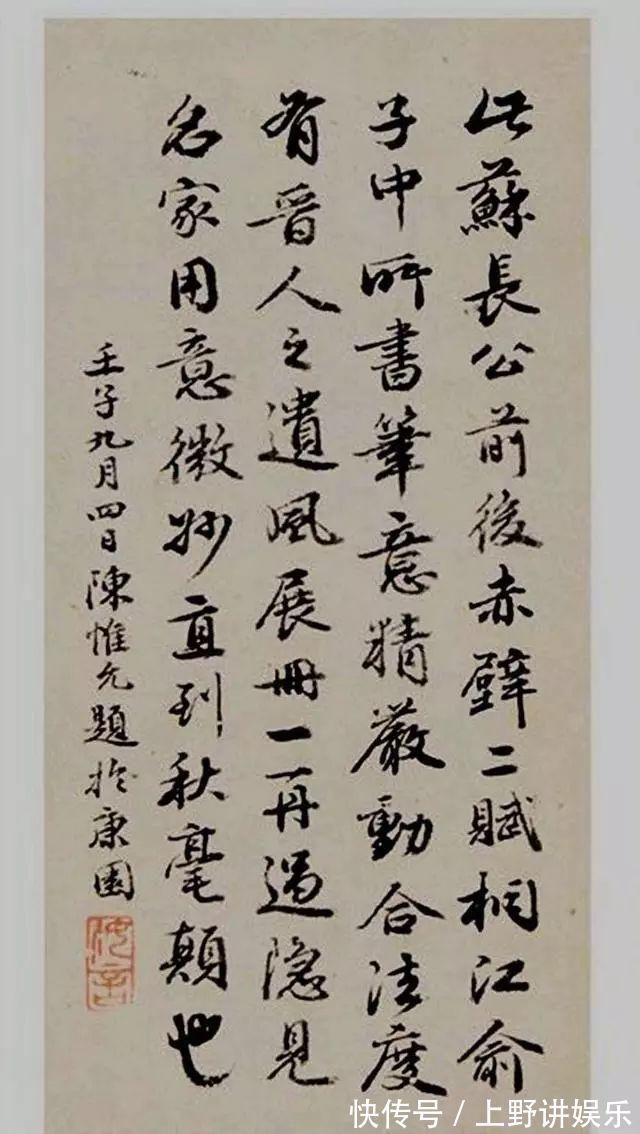 此蘇長公前後赤壁二賦桐江俞
子中所書筆意精嚴動合法度
有晉人之遺風展冊一再過隐見
名家用意微妙直到秋毫顛也
壬子九月四日陳惟允題於康園
快传号/上野讲娱乐